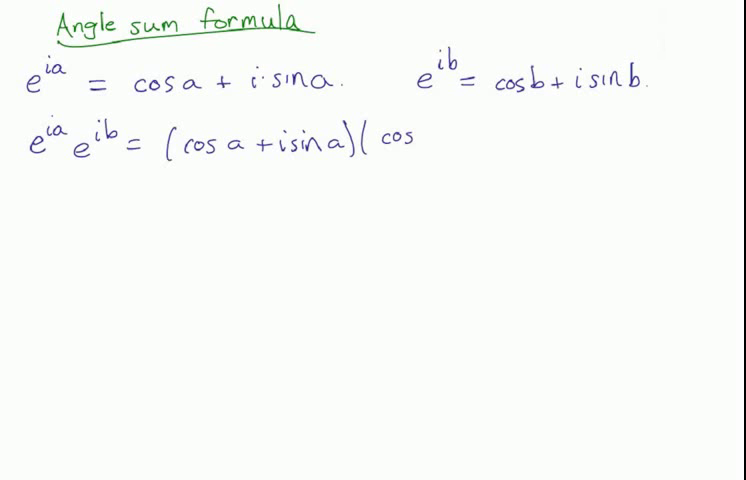 Angle sum formula
e^{ia} = cos a + i · sin a. e^{ib} = cos b + i sin b.
e^{ia} e^{ib} = (cos a + i sin a)( cos